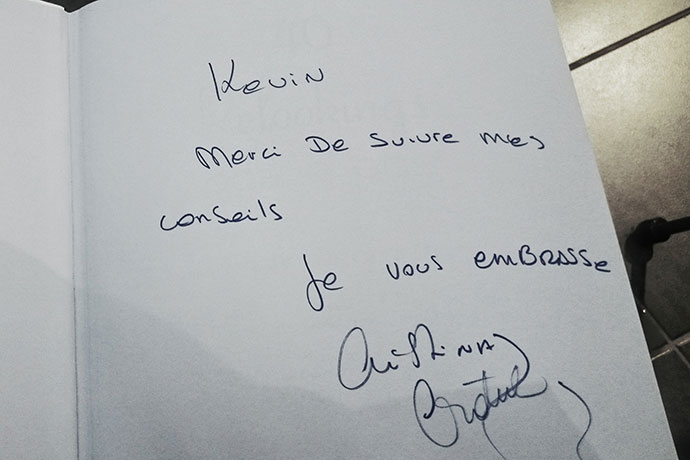 Kevin
Merci De suivre mes
conseils
Je vous emBRASSe
CRiSTiNA